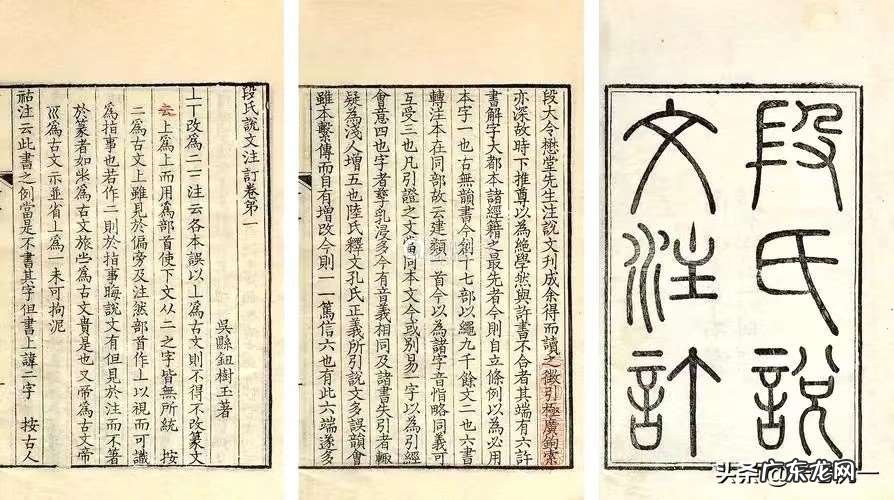 段氏說
文注訂
段大令懋堂先生注說文刊成余得而讀之徵引極廣鉤索
亦深故時下推尊以為絕學然與許書不合者其端有六許
書解字大都本諸經籍之最先者今則自立條例以為必用
本字一也古無韻書今創十七部以繩九千餘文二也六書
轉注本在同部故云建類一首今以為諸字音恉略同義可
互受三也凡引證之文當同本文今或別易一字以為引經
會意四也字者孳乳浸多今有音義相同及諸書失引者輒
疑為淺人增五也陸氏釋文孔氏正義所引說文多誤韻會
雖本繫傳而自有增改今則一一篤信六也有此六端遂多
段氏說文注訂卷第一
吳縣鈕樹玉著
丄丅改為二二注云各本誤以丄為古文則不得不改篆文
上為丄而用爲部首使下文从二之字皆無所統 按
二為古文上雖見於偏旁及注然部首作丄以視而可識
為指事也若作二則於指事晦說文有但見於注而不著
於篆者如為古文旅為古文貴是也又帝為古文帝
巛為古文示並省上為一未可拘泥
祜注云此書之例當是不書其字但書上諱二字 按古人
头条 广东龙网一